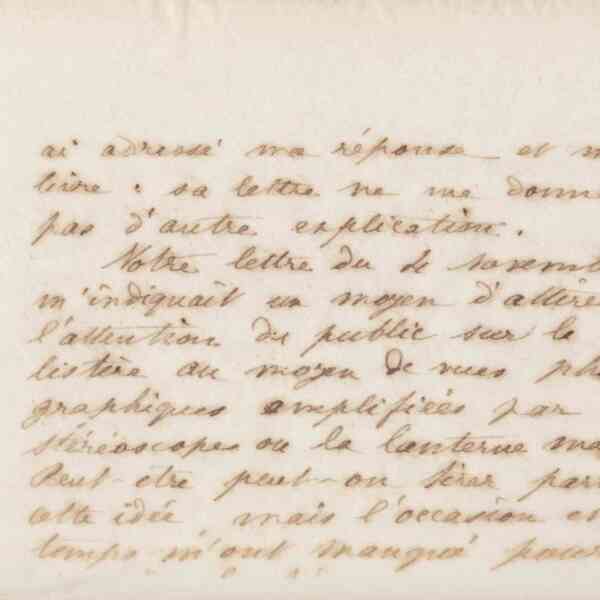 ai adressé ma réponse et m
livre . sa lettre ne me donn
pas d'autre explication.
Votre lettre du 4 novemb
m'indiquait un moyen d'attire
l'attention du public sur le
listère au moyen de vues pho
graphiques amplifiées par
stéréoscope ou la lanterne ma
Peut-etre peut-on tirer par
cette idée mais l'occasion et
temps m'ont manqué pour